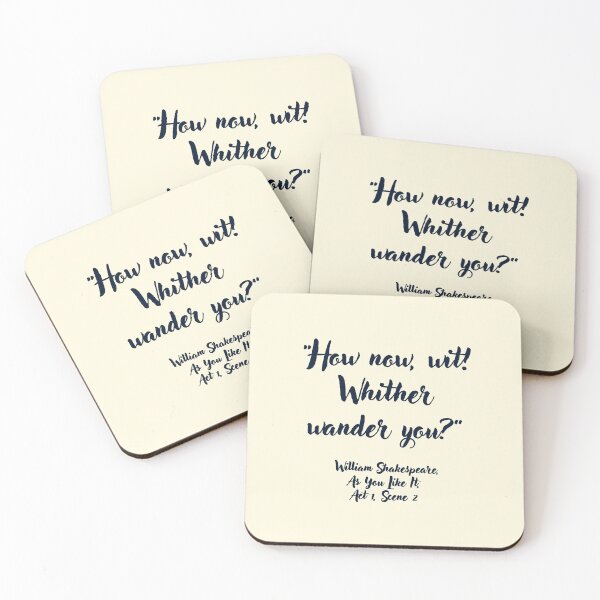 "How now, wit!
Whither
you?"
"How now, wit!
Whither
wander you?"
William Shakespeare,
"How now, wit!
Whither
wander you?"
William Shakespeare
As You Like It
Act 1, Scene
"How now, wit!
Whither
wander you?"
William Shakespeare,
As You Like It,
Act 1, Scene 2